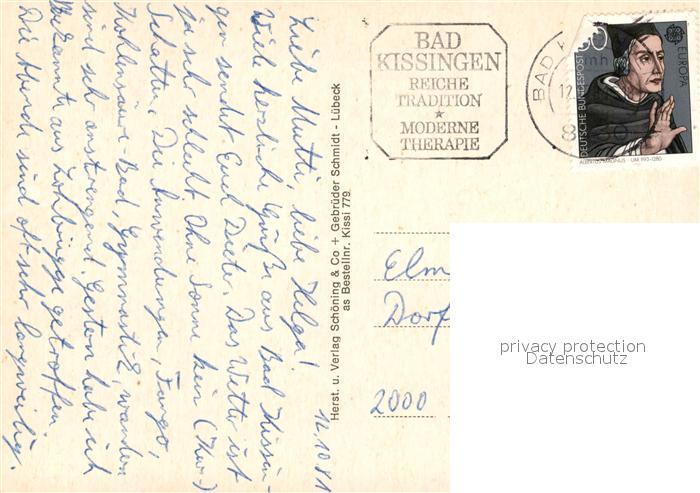 12.10.81
Liebe Mutti, liebe Helga!
Viele herzliche Grüße aus Bad Kissin-
gen sendet Euch Dieter. Das Wetter ist
ja sehr schlecht. Ohne Sonne kein (Kur-)
Schatten. Die Anwendungen, Fango,
Kohlensäure-Bad, Gymnastik,
sind sehr anstrengend. Gestern habe ich
Bekannte aus getroffen
Die Abende sind oft sehr langweilig.
Herst. u. Verlag Schöning & Co + Gebrüder Schmidt - Lübeck
as Bestellnr. Kissi 779
BAD
KISSINGEN
REICHE
TRADITION
★
MODERNE
THERAPIE
BAD
12
DEUTSCHE BUNDESPOST
EUROPA
ALBERTUS MAGNUS · UM 1193-1280
Elm
Dorf
2000
privacy protection
Datenschutz